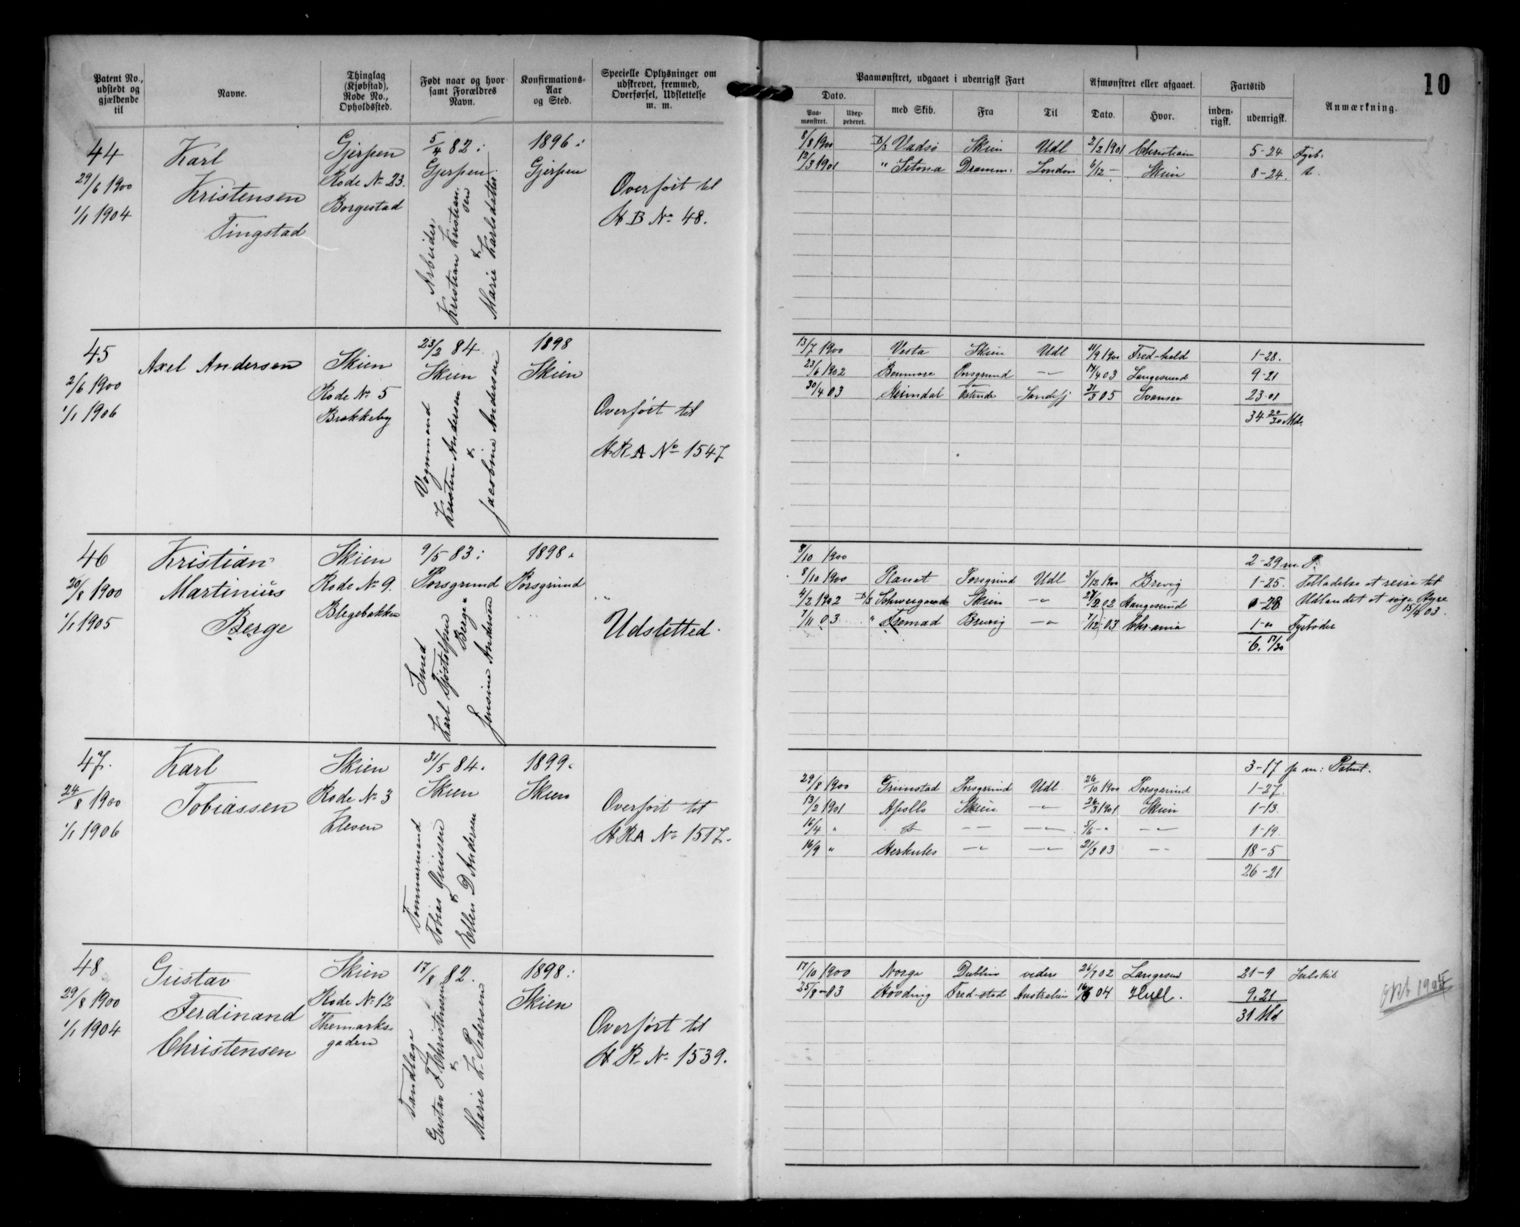 10
Patent No., udstedt og gjældende til
Navne.
Thinglag (Kjøbstad), Rode No., Opholdssted.
Født naar og hvor samt Forældres Navn.
Konfirmations-Aar og Sted.
Specielle Oplysninger om udskrevet, fremmed, Overførsel, Udslettelse m. m.
Paamønstret, udgaaet i udenrigsk Fart
Dato.
Paa-mønstret.
Udex-pederet.
med Skib.
Fra
Til
Afmønstret eller afgaaet.
Dato.
Hvor.
Fartstid
inden-rigsk.
udenrigsk.
Anmærkning.
44
29/6 1900
1/1 1904
Karl
Kristensen
Tingstad
Gjerpen
Rode No 23
Borgestad
5/4 82
Gjerpen
Arbeider
Kristian Kristian
sen
&
Marie Karlsdatter
1896
Gjerpen
Overført til
H B No 48.
8/8 1900 D/S Vadsø Skien Udl 2/2 1901 Christiania 5-24 Fyrb.
12/3 1901 " Ismona Dramm: London 6/12 — Skien 8-24
45
2/6 1900
1/1 1906
Axel Andersen
Skien
Rode No 5
Brækkeby
23/2 84
Skien
Vognmand
Kristen Andersen
&
Jacobine Andersen
1898
Skien
Overført til
H R A No 1547
13/7 1900 Vesta Skien Udl 11/9 1900 Fred-hald 1-28.
23/6 1902 Benmore Porsgrund — 17/4 03 Langesund 9-21
30/4 03 Heimdal Ostende Sandefj 21/3 05 Svansea 23-01
34 20/30 Mdr
46
20/8 1900
1/1 1905
Kristian
Martinius
Berge
Skien
Rode No 9.
Blegebakken
9/5 83
Porsgrund
Smed
Karl Gjøstolfsen
Berge
Jensine Andersen
1898.
Porsgrund
Udslettet.
9/10 1900 2-29 m P.
8/10 1900 Hanat Porsgrund Udl 3/12 1900 Brevig 1-25 Tilladelse at reise til
4/2 1902 D/S Schweigaard Skien — 02 Langesund 0-28 Udlandet at søge Hyre
7/11 03 " Fremad Brevig — 7/12 03 Chr.ania 1-00 Fyrbøder 03.
6. 17/30
47.
24/8 1900
1/1 1906
Karl
Tobiassen
Skien
Rode No 3
Kleven
31/5 84.
Skien
Tømmermand
Tobias
&
Ellen D Andersen
1899.
Skien
Overført til
H R A No 1517.
3-17 Patent.
29/8 1900 Grimstad Porsgrund Udl 26/10 1900 Porsgrund 1-27
13/2 1901 Apollo Skien — 26/3 1901 Skien 1-13
16/4 " — — 5/6 — — 1-19
16/9 " Herkules — — 21/3 03 — 18-5
26-21
48
29/8 1900
1/1 1904
Gustav
Ferdinand
Christensen
Skien
Rode No 12
Themarks-
gaden
17/8 82
Skien
Tandlæge
Gustav F Christensen
&
Marie K. Pedersen
1898.
Skien
Overført til
H R No 1539.
17/10 1900 Norge Dublin videre 26/7 02 Langesund 21-9 Seilskib
25/8 -03 Høvding Fred-stad Australien 04 Hull. 9.21
31 Md